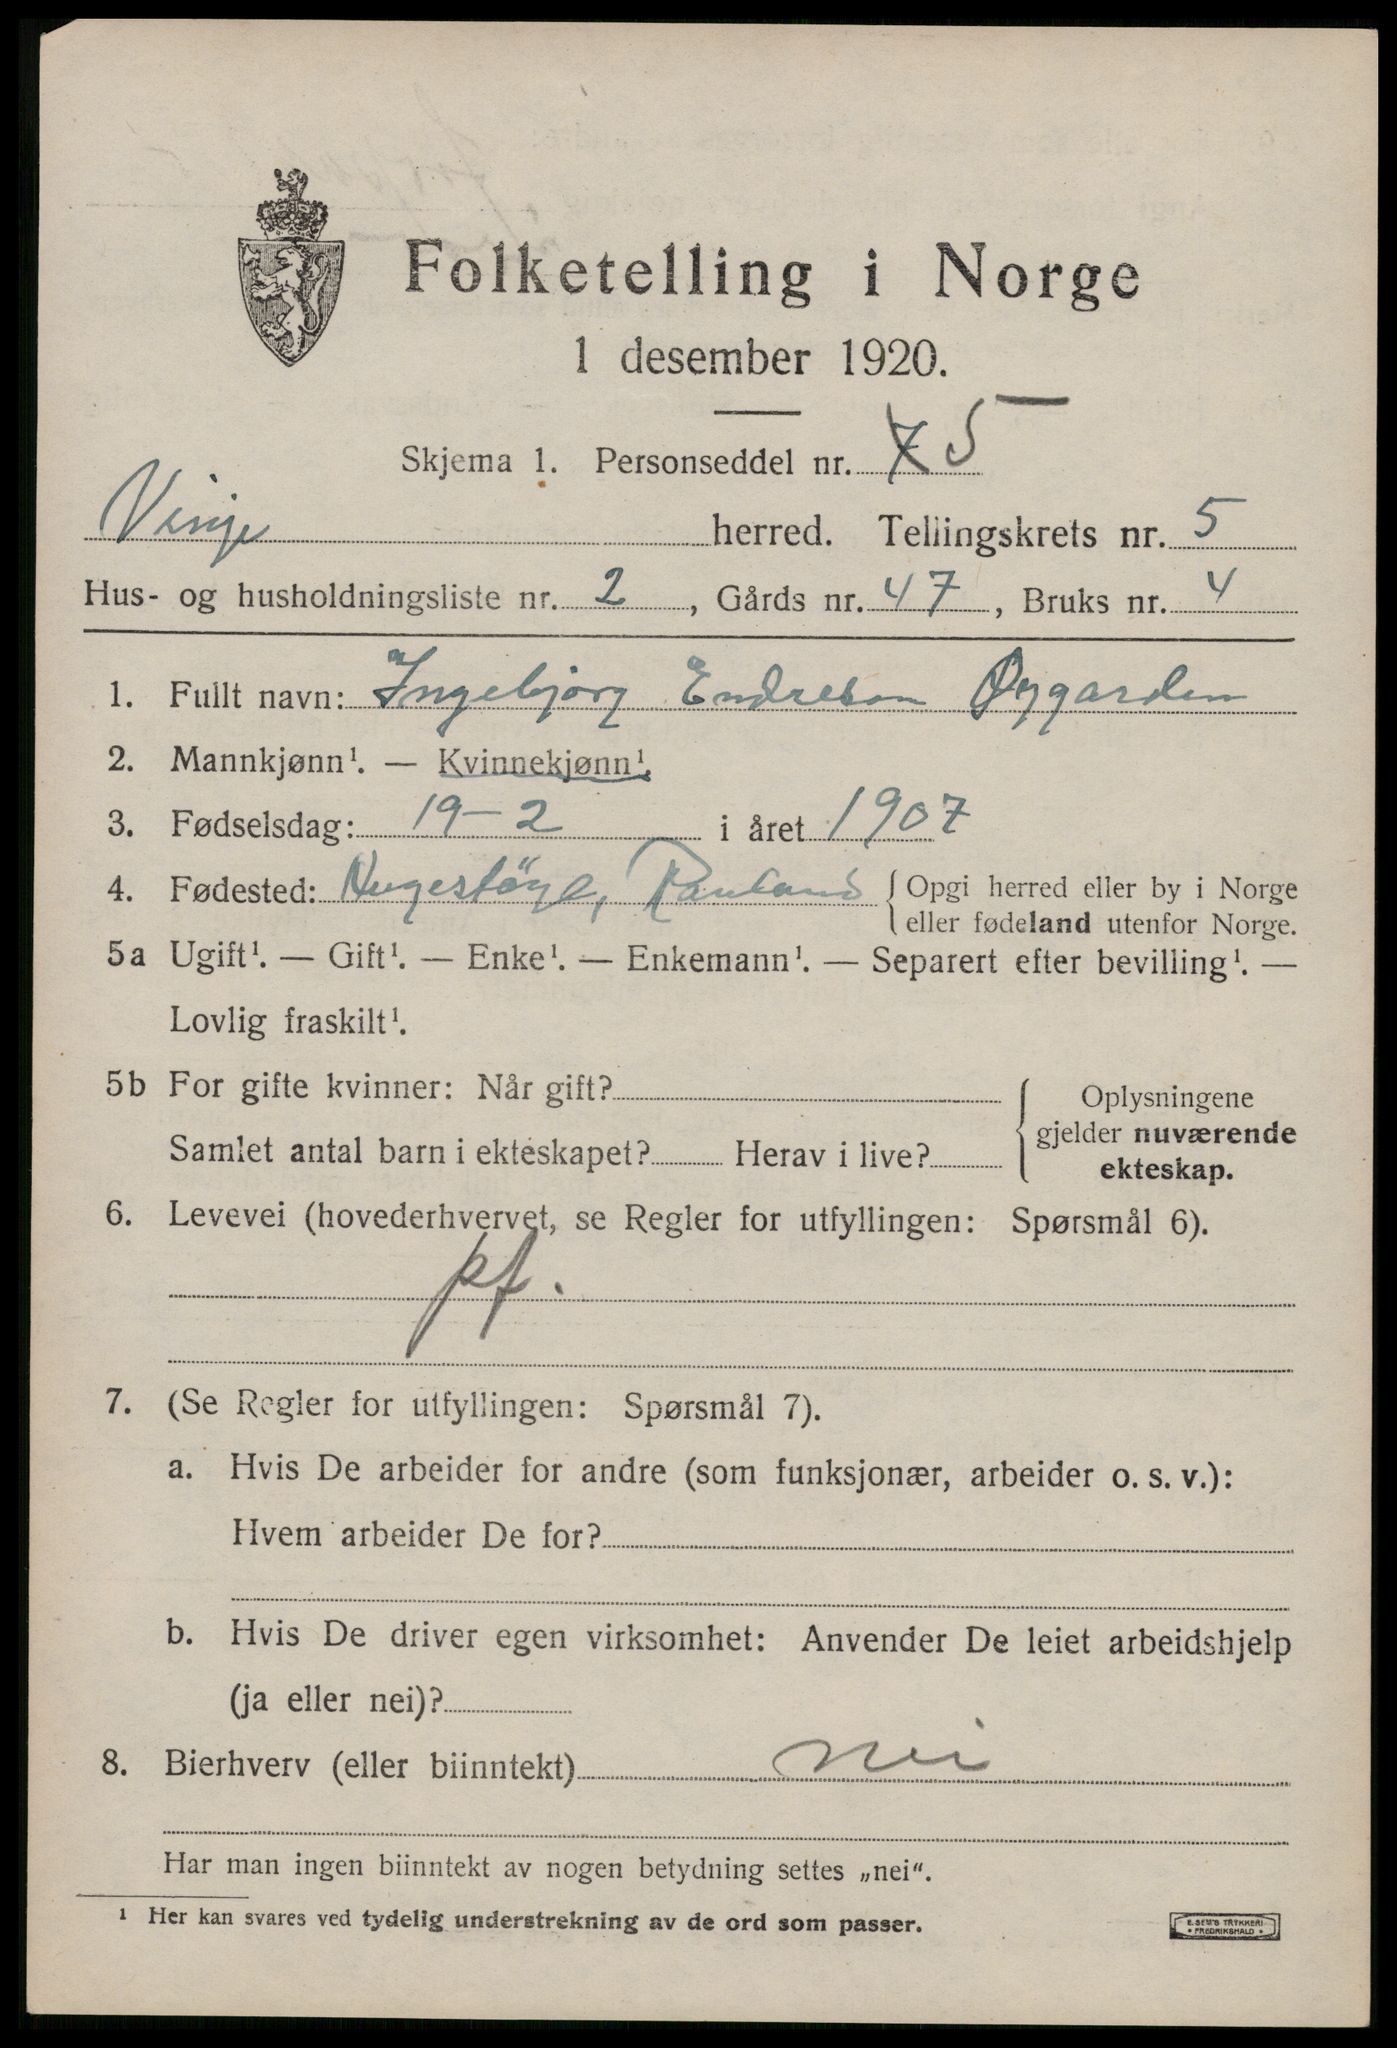 Folketelling i Norge
1 desember 1920.
Skjema 1. Personseddel nr. 7 5
Vinje herred. Tellingskrets nr. 5
Hus- og husholdningsliste nr. 2, Gårds nr. 47, Bruks nr. 4
1. Fullt navn: Ingebjörg Endreson Øygarden
2. Mannkjønn¹. — Kvinnekjønn¹.
3. Fødselsdag: 19-2 i året 1907
4. Fødested: Rauland { Opgi herred eller by i Norge
eller fødeland utenfor Norge.
5a Ugift¹. — Gift¹. — Enke¹. — Enkemann¹. — Separert efter bevilling¹. —
Lovlig fraskilt¹.
5b For gifte kvinner: Når gift?
Samlet antal barn i ekteskapet? Herav i live?
{ Oplysningene
gjelder nuværende
ekteskap.
6. Levevei (hovederhvervet, se Regler for utfyllingen: Spørsmål 6).
pf.
7. (Se Regler for utfyllingen: Spørsmål 7).
a. Hvis De arbeider for andre (som funksjonær, arbeider o. s. v.):
Hvem arbeider De for?
b. Hvis De driver egen virksomhet: Anvender De leiet arbeidshjelp
(ja eller nei)?
8. Bierhverv (eller biinntekt) nei
Har man ingen biinntekt av nogen betydning settes „nei“.
¹ Her kan svares ved tydelig understrekning av de ord som passer.
E. SEM'S TRYKKERI
• FREDRIKSHALD •